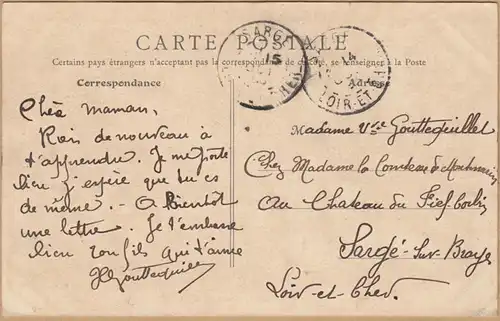 CARTE POSTALE
Certains pays étrangers n'acceptant pas la correspondance de ce côté, se renseigner à la Poste
Correspondance
SARGÉ
15
14
LOIR-ET-CH
CHER
Chère maman,
Rien de nouveau à
t'apprendre. Je me porte
bien j'espère que tu es
de même. - A Bientôt
une lettre. Je t'embrasse
bien ton fils qui t'aime
HGouttequillet
Madame Vve Gouttequillet
Chez Madame la Comtesse de
au Chateau du Fief
Sargé-Sur-Braye
Loir-et-Cher.